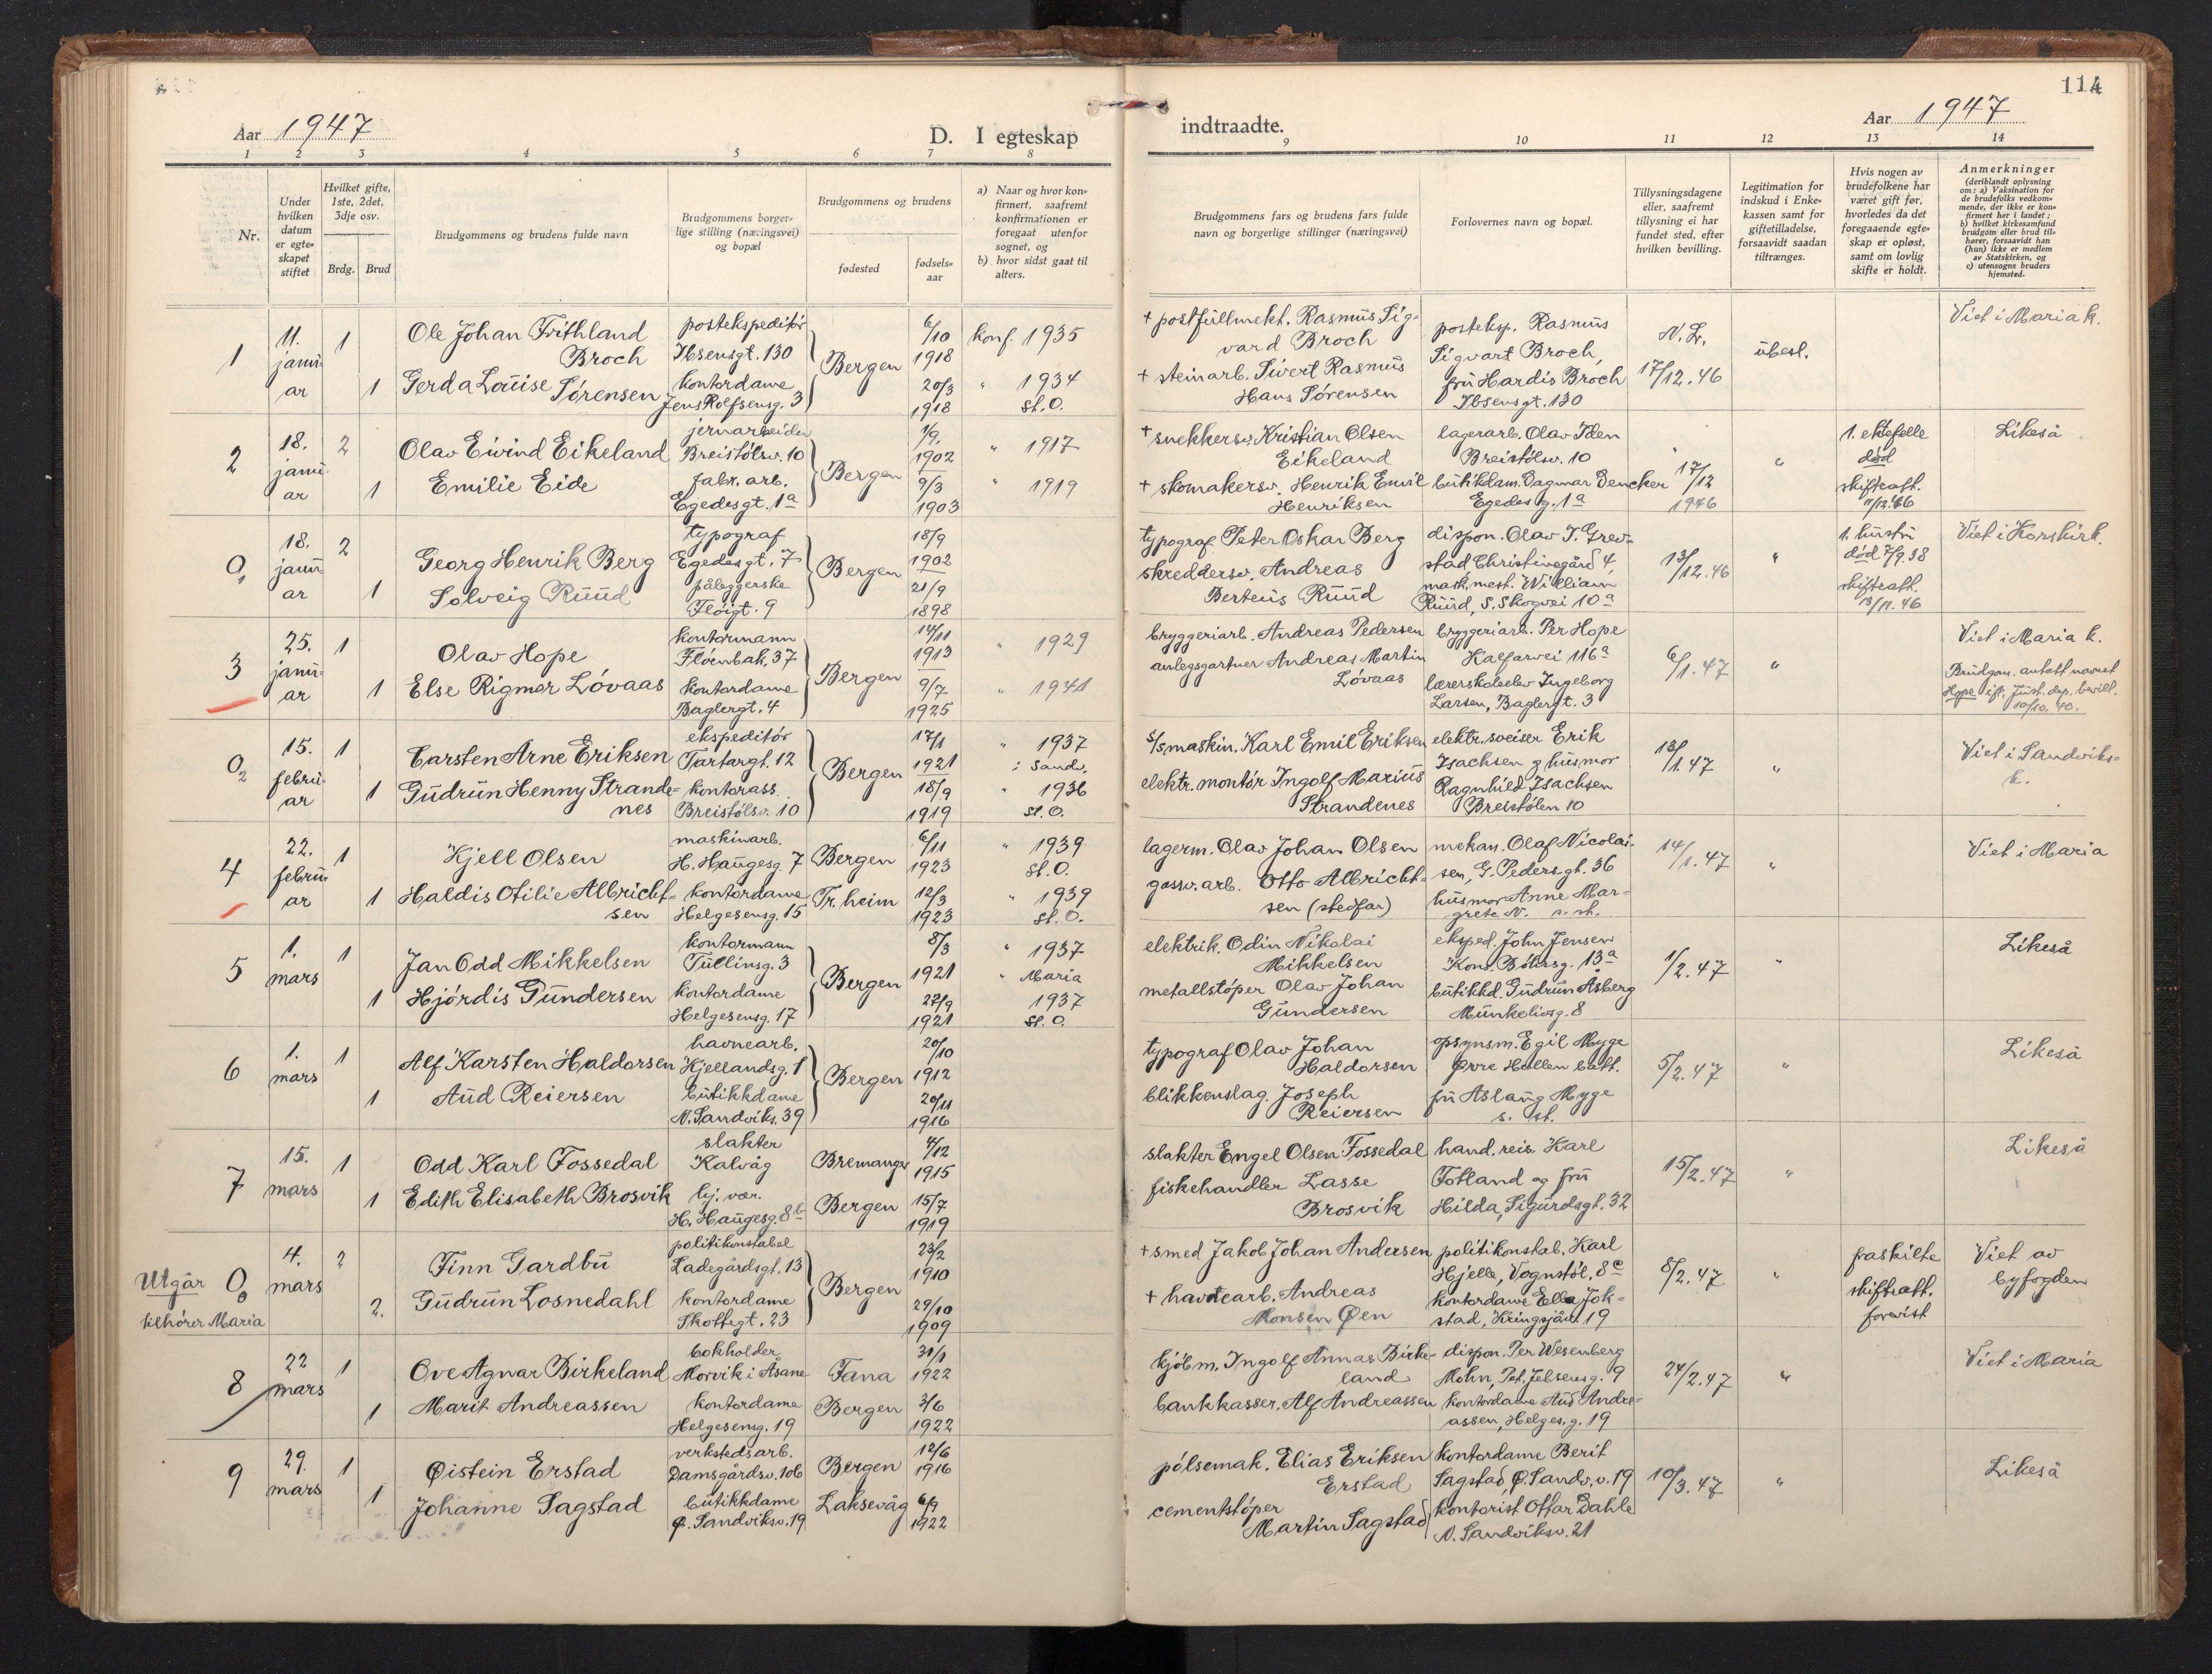 114
Aar 1947
D. I egteskap
indtraadte.
Aar 1947
1 2 3 4 5 6 7 8 9 10 11 12 13 14
Nr.
Under hvilken datum er egte- skapet stiftet
Hvilket gifte, 1ste, 2det, 3dje osv.
Brdg. Brud
Brudgommens og brudens fulde navn
Brudgommens borger- lige stilling (næringsvei) og bopæl
Brudgommens og brudens
fødested
fødsels- aar
a) Naar og hvor kon- firmert, saafremt konfirmationen er foregaat utenfor sognet, og
b) hvor sidst gaat til alters.
Brudgommens fars og brudens fars fulde navn og borgerlige stillinger (næringsvei)
Forlovernes navn og bopæl.
Tillysningsdagene eller, saafremt tillysning ei har fundet sted, efter hvilken bevilling.
Legitimation for indskud i Enke- kassen samt for giftetilladelse, forsaavidt saadan tiltrænges.
Hvis nogen av brudefolkene har været gift før, hvorledes da det foregaaende egte- skap er opløst, samt om lovlig skifte er holdt.
Anmerkninger
(deriblandt oplysning om: a) Vaksination for de brudefolks vedkom- mende, der ikke er kon- firmert her i landet; b) hvilket kirkesamfund brudgom eller brud til- hører, forsaavidt han (hun) ikke er medlem av Statskirken, og c) utensogns bruders hjemsted.
1
11. janu- ar
1
Ole Johan Frithland Broch
postekspeditør
Ibsensgt. 130
Bergen
6/10 1918
konf. 1935
+ postfullmekt. Rasmus Sig- vard Broch
posteksp. Rasmus Sigvart Broch,
N. L.
17/12.46
ubesl.
Viet i Maria k.
1
Gerda Louise Sørensen
kontordame
Jens Rolfsensg. 3
20/3 1918
" 1934
St. O.
+ steinarb. Sivert Rasmus Hans Sørensen
fru Hardis Broch
Ibsensgt. 130
2
18. janu- ar
2
Olav Eivind Eikeland
jernarbeider
Breistølsv. 10
Bergen
1/9. 1902
" 1917
+ snekkersv. Kristian Olsen Eikeland
lagerarb. Olav Iden
Breistølsv. 10
"
17/12 1946
"
1. ektefelle død
skifteatt.
11/12.46
Likeså
1
Emilie Eide
fabr. arb.
Egedesgt. 1a
9/3 1903
" 1919
+ skomakersv. Henrik Emil Henriksen
butikkdam. Dagmar Dencker
Egedesg. 1a
0,
18. janu- ar
2
Georg Henrik Berg
typograf
Egedesgt. 7
Bergen
18/9 1902
typograf Peter Oskar Berg
dispon. Olav T. Grev- stad Christinegård 4,
13/12.46
"
1. hustru død 7/9.38
skifteatt.
13/11.46
Viet i Korskirk.
1
Solveig Ruud
påleggerske
Fløigt. 9
21/9 1898
skreddersv. Andreas Berteus Ruud
mask.mest. William Ruud, S. Skogvei 10a
3
25. janu- ar
1
Olav Hope
kontormann
Fløenbak. 37
Bergen
14/11 1913
" 1929
bryggeriarb. Andreas Pedersen
bryggeriarb. Per Hope
Kalfarvei 116a
6/1.47
"
Viet i Maria k.
Brudgom. antatt navnet Hope ifl. Just. dep. bevill. 10/10. 40.
1
Else Rigmor Løvaas
kontordame
Baglergt. 4
9/7 1925
" 1941
anlegsgartner Andreas Martin Løvaas
lærerskoleelev Ingeborg Larsen, Baglergt. 3
02
15. febru- ar
1
Carsten Arne Eriksen
ekspeditør
Tartargt. 12
Bergen
17/1 1921
" 1937
i Sandv.
S/s maskin. Karl Emil Eriksen
elektr. sveiser Erik Isachsen og husmor
13/1.47
"
Viet i Sandviks- k.
1
Gudrun Henny Strande- nes
kontorass.
Breistølsv. 10
18/9 1919
" 1936
St. O.
elektr. montør Ingolf Marius Strandenes
Ragnhild Isachsen
Breistølen 10
4
22. febru- ar
1
Kjell Olsen
maskinarb.
H. Haugesg. 7
Bergen
6/11 1923
" 1939
St. O.
lagerm. Olav Johan Olsen
mekan. Olaf Nicolai- sen, G. Pedersgt. 36
14/1.47
"
Viet i Maria
1
Haldis Otilie Albricht- sen
kontordame
Helgesensg. 15
Tr.heim
12/3 1923
" 1939
St. O.
gassv. arb. Otto Albricht- sen (stedfar)
husmor Anne Mar- grete N. s. st.
5
1. mars
1
Jan Odd Mikkelsen
kontormann
Tullinsg. 3
Bergen
8/3 1921
" 1937
" Maria
elektrik. Odin Nikolai Mikkelsen
eksped. John Jensen
Kons. Børsg. 13a
1/2.47
"
Likeså
1
Hjørdis Gundersen
kontordame
Helgesensg. 17
27/9 1921
1937
St. O.
metallstøper Olav Johan Gundersen
butikkd. Gudrun Åsberg
Munkelivsg. 8
6
1. mars
1
Alf Karsten Haldorsen
havnearb.
Kjellandsg. 1
Bergen
20/10 1912
typograf Olav Johan Haldorsen
opsynsm. Egil Myge
Øvre Hollen batt.
5/2.47
"
Likeså
1
Aud Reiersen
butikkdame
N. Sandviks. 39
20/11 1916
blikkenslag. Joseph Reiersen
fru Aslaug Myge
s. st.
7
15. mars
1
Odd Karl Fossedal
slakter
Kalvåg
Bremanger
4/12 1915
slakter Engel Olsen Fossedal
hand. reis. Karl Fotland og fru
15/2.47
"
Likeså
1
Edith Elisabeth Brosvik
hj. vær.
H. Haugesg. 8b
Bergen
15/7 1919
fiskehandler Lasse Brosvik
Hilda, Sigurdsgt. 32
Utgår
tilhører Maria
0
4. mars
2
Finn Gardbu
politikonstabel
Ladegårdsgt. 13
Bergen
23/2 1910
+ smed Jakob Johan Andersen
politikonstab. Karl Hjelle, Vognstøl. 8c
8/2.47
"
fraskilte
skifteatt. forevist
Viet av byfogden
2.
Gudrun Losnedahl
kontordame
Skottegt. 23
29/10 1909
+ havnearb. Andreas Monsen Øen
kontordame Ella Jok- stad, Kringsjåv. 19
8
22 mars
1
Ove Agnar Birkeland
bokholder
Morvik i Åsane
Fana
31/1 1922
kjøbm. Ingolf Annas Birke- land
dispon. Per Wesenberg Mohn, Pet. Jebsensg. 9
24/2.47
"
Viet i Maria
1
Marit Andreassen
kontordame
Helgesensg. 19
Bergen
3/6 1922
bankkasser. Alf Andreassen
kontordame Aud Andre- assen, Helges.g. 19
9
29. mars
1
Øistein Erstad
verkstedsarb.
Damsgårdsv. 106
Bergen
12/6 1916
pølsemak. Elias Eriksen Erstad
kontordame Berit Sagstad, Ø. Sandv.v. 19
10/3.47
"
Likeså
1
Johanne Sagstad
butikkdame
Ø. Sandviksv. 19
Laksevåg
6/9 1922
cementstøper Martin Sagstad
kontorist Ottar Dahle
N. Sandviksv. 21